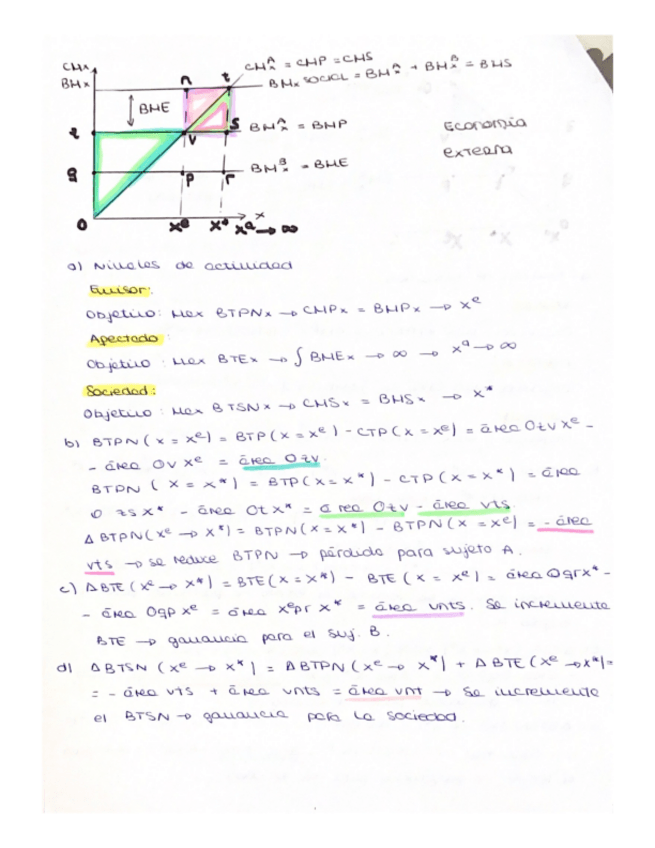 CMx
BMx
CMxᴬ = CMP = CMS
BMx SOCIAL = BMxᴬ + BMxᴮ = BMS
n
t
BME
z
v
s
BMxᴬ = BMP
Economía
externa
g
p
r
BMxᴮ = BME
0
xᵉ
x*
xᵃ → ∞
x
a) Niveles de actividad
Emisor:
Objetivo: Max BTPNx → CMPx = BMPx → xᵉ
Apectado:
Objetivo: Max BTEx → ∫ BMEx → ∞ → xᵃ → ∞
Sociedad:
Objetivo: Max BTSNx → CMSx = BMSx → x*
b) BTPN (x = xᵉ) = BTP (x = xᵉ) - CTP (x = xᵉ) = área Ozv xᵉ -
- área Ov xᵉ = área Ozv
BTPN (x = x*) = BTP (x = x*) - CTP (x = x*) = área
O zs x* - área Ot x* = área Ozv - área vts
Δ BTPN (xᵉ → x*) = BTPN (x = x*) - BTPN (x = xᵉ) = - área
vts → se reduce BTPN → pérdida para sujeto A.
c) Δ BTE (xᵉ → x*) = BTE (x = x*) - BTE (x = xᵉ) = área Ogrx* -
- área Ogp xᵉ = área xᵉpr x* = área vnts. Se incrementa
BTE → ganancia para el suj. B.
d) Δ BTSN (xᵉ → x*) = Δ BTPN (xᵉ → x*) + Δ BTE (xᵉ → x*) =
= - área vts + área vnts = área vnt → Se incrementa
el BTSN → ganancia para la sociedad.